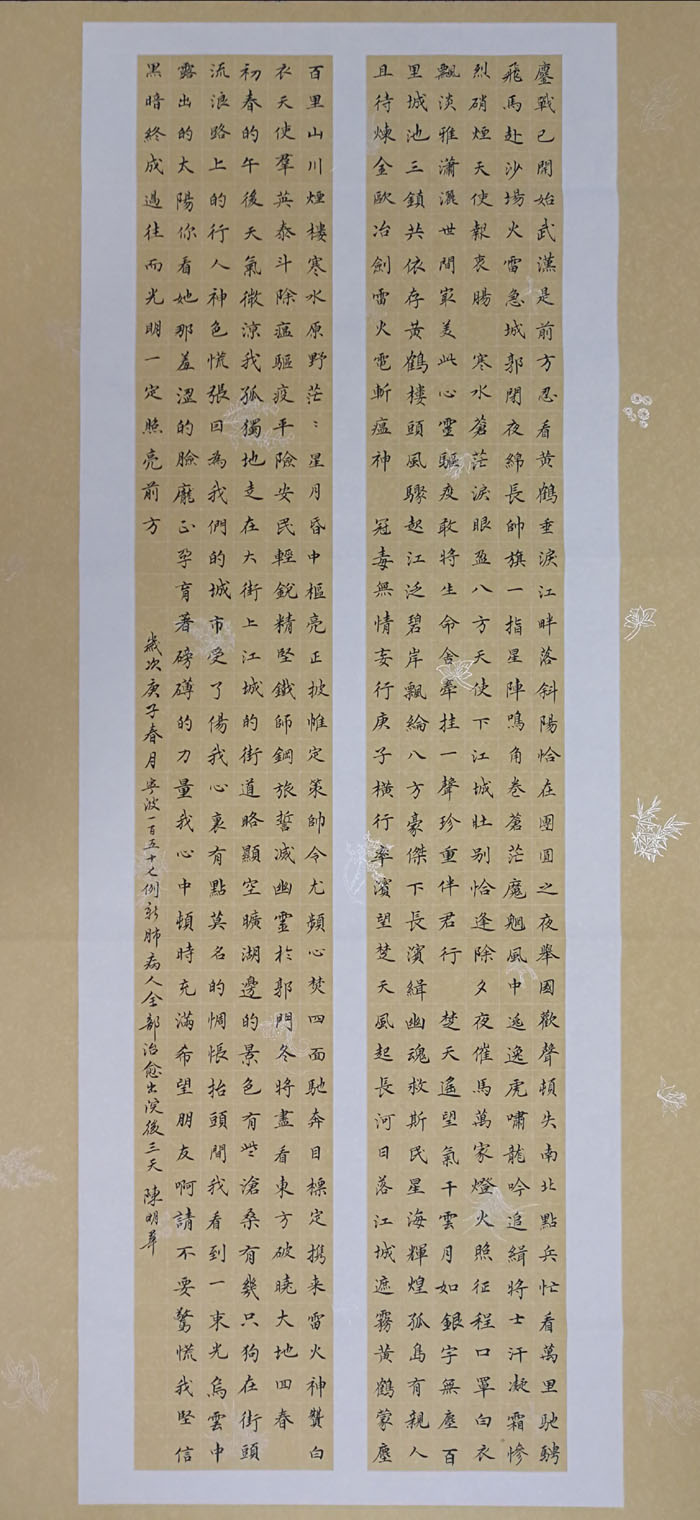 鏖戰已開始武漢是前方忍看黄鶴垂淚江畔落斜陽恰在團圓之夜舉國歡聲頓失南北點兵忙看萬里馳騁
飛馬赴沙場火雷急城郭閉夜綿長帥旗一指星陣鳴角卷蒼茫魔魍風中逃逸虎嘯龍吟追緝將士汗凝霜慘
烈硝煙天使報衷腸 寒水蒼茫淚眼盈八方天使下江城壯别恰逢除夕夜催馬萬家燈火照征程口罩白衣
飄淡雅瀟灑世間最美此心靈驅疫敢將生命舍牽挂一聲珍重伴君行 楚天遙望氣干雲月如銀字無塵百
里城池三鎮共依存黄鶴樓頭風驟起江泛碧岸飄綸八方豪傑下長濱緝幽魂救斯民星海輝煌孤島有親人
且待煉金歐冶劍雷火電斬瘟神 冠毒無情妄行庚子橫行率濱望楚天風起長河日落江城遮霧黄鶴蒙塵
百里山川煙樓寒水原野茫〻星月昏中樞亮正披帷定策帥令尤頻心焚四面馳奔目標定携来雷火神贊白
衣天使羣英泰斗除瘟驅疫平險安民輕銳精堅鐵師鋼旅誓滅幽靈於郭門冬將盡看東方破曉大地四春
初春的午後天氣微涼我孤獨地走在大街上江城的街道略顯空曠湖邊的景色有些滄桑有幾只狗在街頭
流浪路上的行人神色慌張因為我們的城市受了傷我心裏有點莫名的惆悵抬頭間我看到一束光烏雲中
露出的太陽你看她那羞澀的臉龐正孕育著磅礴的力量我心中頓時充滿希望朋友啊請不要驚慌我堅信
黑暗終成過往而光明一定照亮前方
歲次庚子春月寧波一百五十七例新肺病人全部治愈出院後三天 陳明華